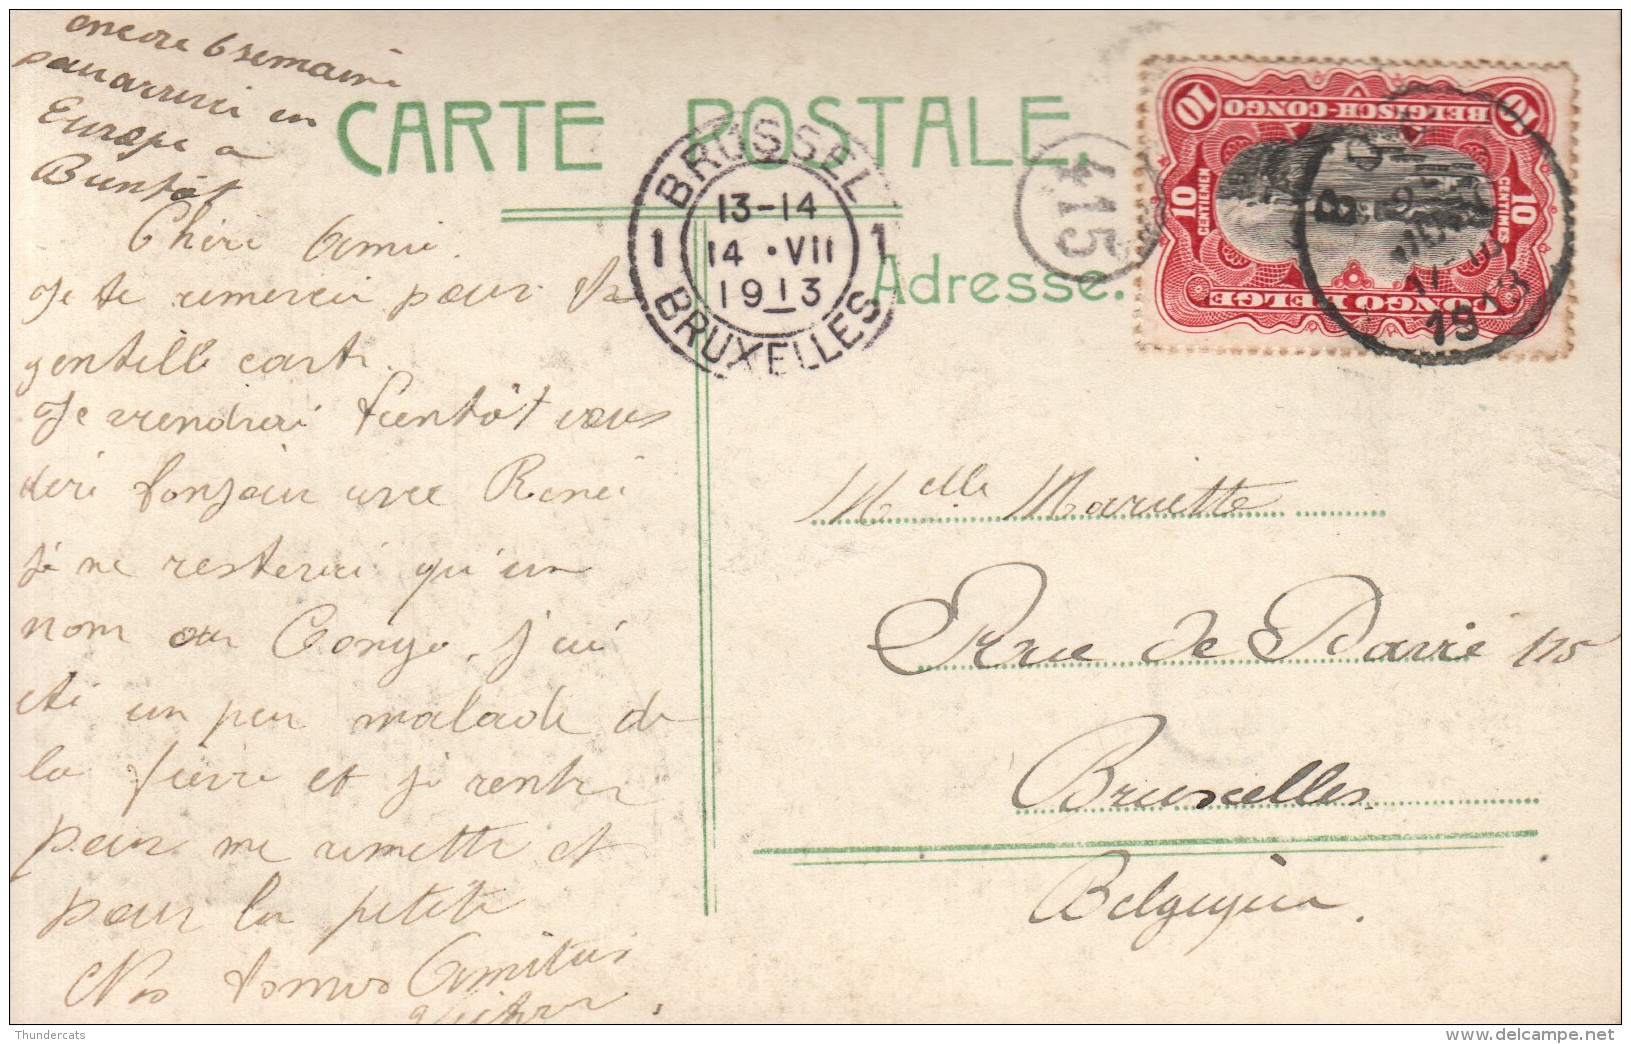 encore 6 semaine
pour arrivé en
Europe a
Bientôt
CARTE POSTALE.
Adresse.
BRUSSEL
13-14
14 • VII
1913
1 BRUXELLES 1
415
BELGISCH-CONGO
10 10
10 CENTIEMEN
10 CENTIMES
CONGO BELGE
BOMA
1913
Chère Amie.
Je te remercie pour ta
gentille carte.
Je viendrai bientôt vous
dire bonjour avec René
je ne resterai qu'un
mon au Congo. j'ai
été un peu malade de
la fièvre et je rentre
pour me remettre et
pour la petite
Nos bonnes Amitiés
Victor.
Melle Mariette
Rue de Parie 175
Bruxelles
Belgique.
Thundercats
www.delcampe.net